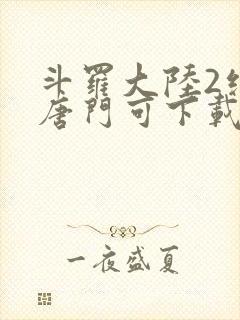 斗羅大陸2
唐門可下載
一夜盛夏